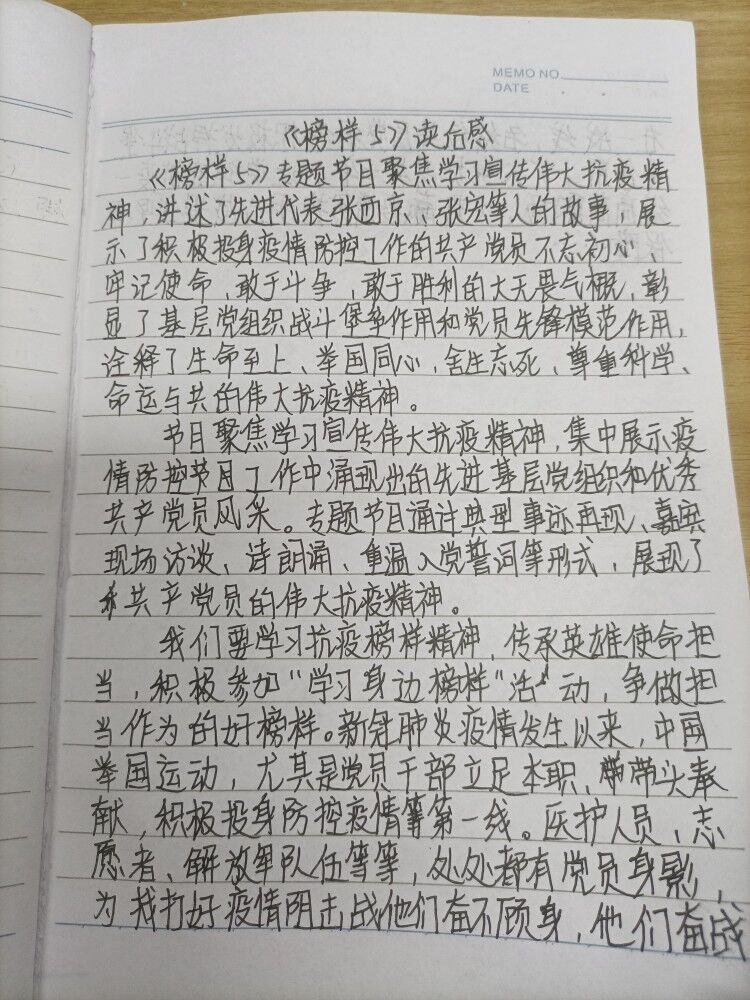 MEMO NO.
DATE
《榜样5》读后感
《榜样5》专题节目聚焦学习宣传伟大抗疫精
神，讲述了先进代表张西京、张宏等人的故事，展
示了积极投身疫情防控工作的共产党员不忘初心、
牢记使命，敢于斗争，敢于胜利的大无畏气概，彰
显了基层党组织战斗堡争作用和党员先锋模范作用，
诠释了生命至上、举国同心，舍生忘死，尊重科学、
命运与共的伟大抗疫精神。
节目聚焦学习宣传伟大抗疫精神，集中展示疫
情防控节目工作中涌现出的先进基层党组织和优秀
共产党员风采。专题节目通过典型事迹再现、嘉宾
现场访谈，诗朗诵、重温入党誓词等形式，展现了
共产党员的伟大抗疫精神。
我们要学习抗疫榜样精神，传承英雄使命担
当，积极参加“学习身边榜样”活动，争做担
当作为的好榜样。新冠肺炎疫情发生以来，中国
举国运动，尤其是党员干部立足本职、带头奉
献，积极投身防控疫情第一线。医护人员，志
愿者、解放军队伍等等，处处都有党员身影，
为我打好疫情阻击战他们奋不顾身，他们奋战